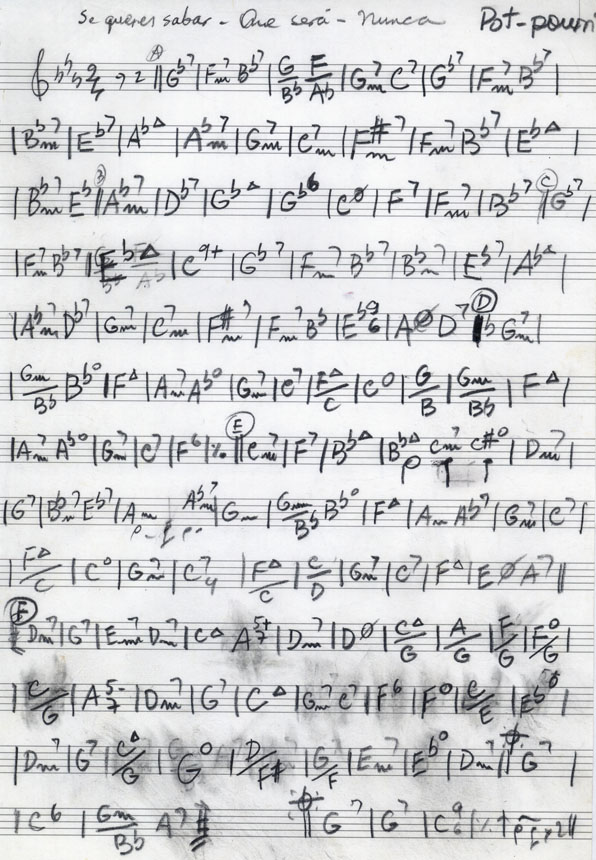 Se queres sabar - Que será - Nunca Pot-pourri
A || G♭7 | Fm7 B♭7 | G/B♭ E/A♭ | Gm7 C7 | G♭7 | Fm7 B♭7 |
| B♭m7 | E♭7 | A♭Δ | A♭m7 | Gm7 | Cm7 | F#m7 | Fm7 B♭7 | E♭Δ |
| B♭m7 E♭7 B || A♭m7 | D♭7 | G♭Δ | G♭6 | Cø | F7 | Fm7 | B♭7 C || G♭7 |
| Fm7 B♭7 | E♭Δ | C9+ | G♭7 | Fm7 B♭7 | B♭m7 | E♭7 | A♭Δ |
| A♭m7 D♭7 | Gm7 | Cm7 | F#m7 | Fm7 B♭ | E♭6 9 | Aø D7 D || Gm7 |
| Gm/B♭ B♭o | FΔ | Am7 A♭o | Gm7 | C7 | FΔ/C | Co | G/B | Gm/B♭ | FΔ |
| Am7 A♭o | Gm7 | C7 | F6 | % E || Cm7 | F7 | B♭Δ | B♭Δ Cm7 C#o | Dm7 |
| G7 | B♭m7 E♭7 | Am7 A♭m7 | Gm | Gm/B♭ B♭o | FΔ | Am A♭7 | Gm7 | C7 |
| FΔ/C | Co | Gm7 | C7 4 | FΔ/C | C/D | Gm7 | C7 | FΔ | Eø A7 ||
F | Dm7 | G7 | Em7 Dm7 | CΔ A5+ 7 | Dm7 | Dø | CΔ/G | A/G | F/G | Fo/G |
| C/G | A5- 7 | Dm7 | G7 | CΔ | Gm7 C7 | F6 | Fo | C/E | E♭o |
| Dm7 | G7 | CΔ/G | Go | D/F# | G/F | Em7 | E♭o | Dm7 || G7 |
| C6 | Gm/B♭ A7 || G7 | G7 | C6 9 | % ||